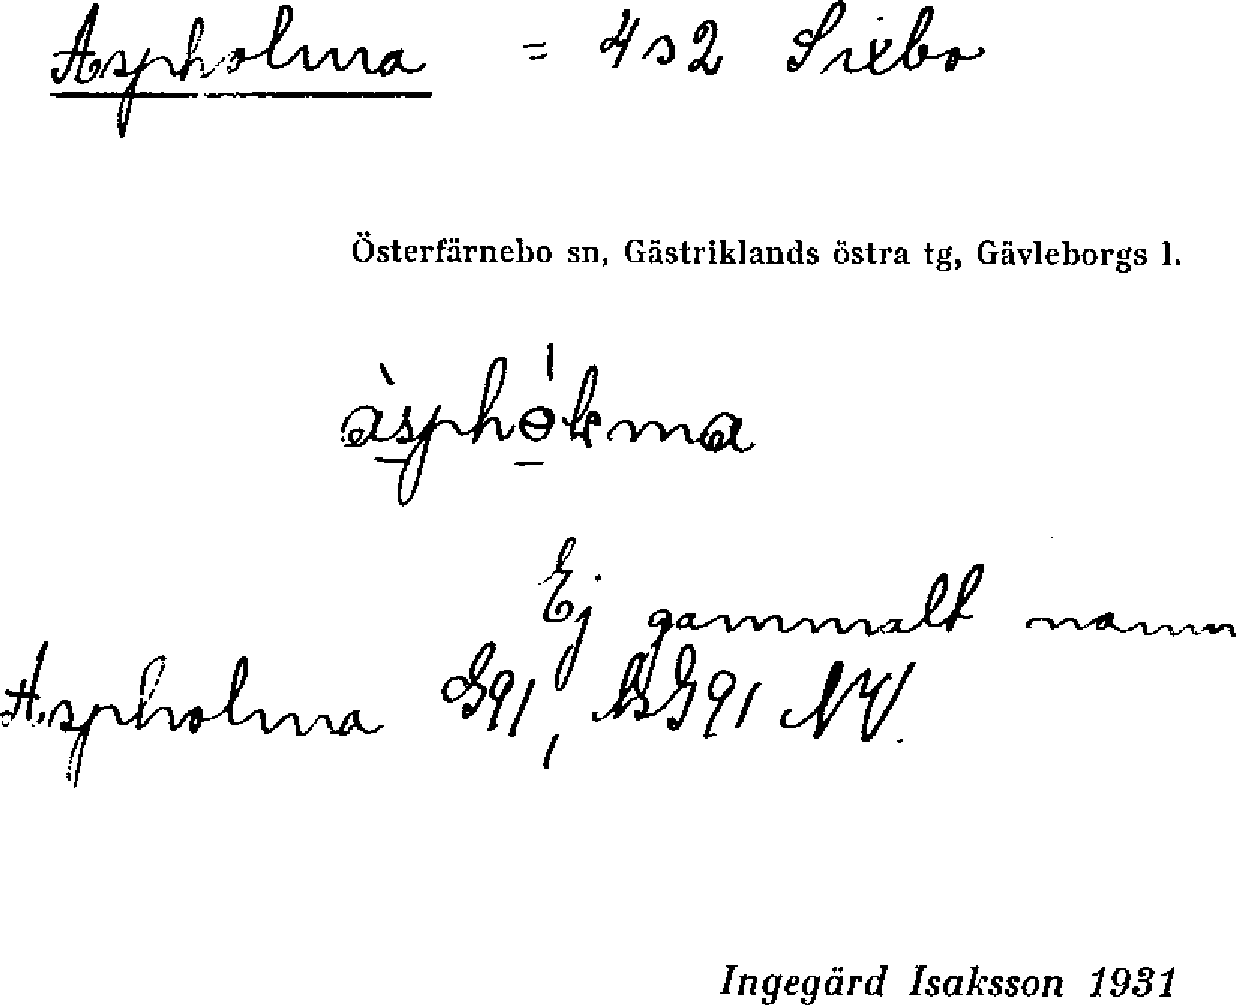 Aspholma = 4s2 Sixbo
Österfärnebo sn, Gästriklands östra tg, Gävleborgs l.
Ej gammalt namn
Aspholma G91, BG91 NV.
Ingegärd Isaksson 1931